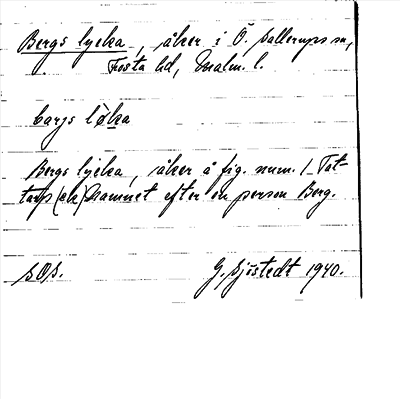 Bergs lycka, åker i Ö. Sallerups sn,
Frosta hd, Malm. l.
barjs lø̀ka
Bergs lycka, åker å fig. num. 1 Tat-
tarp (ek) Namnet efter en person Berg.
SOS. G. Sjöstedt 1940.